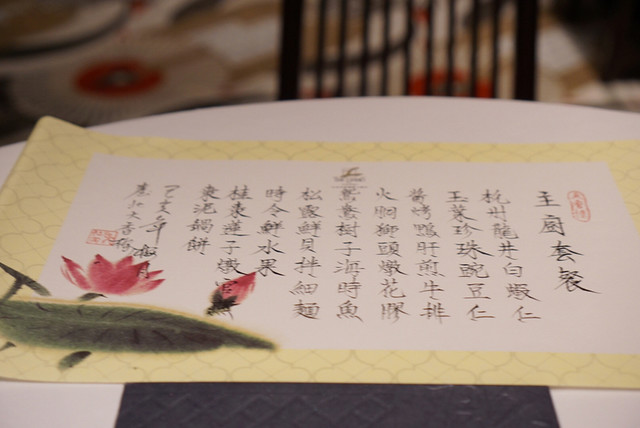 主廚套餐
杭州龍井白蝦仁
玉葉珍珠豌豆仁
醬烤鴨肝煎牛排
火朣獅頭燉花膠
鴛鴦樹子海時魚
松露鮮貝拌細麵
時令鮮水果
桂棗蓮子燉
東港鍋餅
己亥年